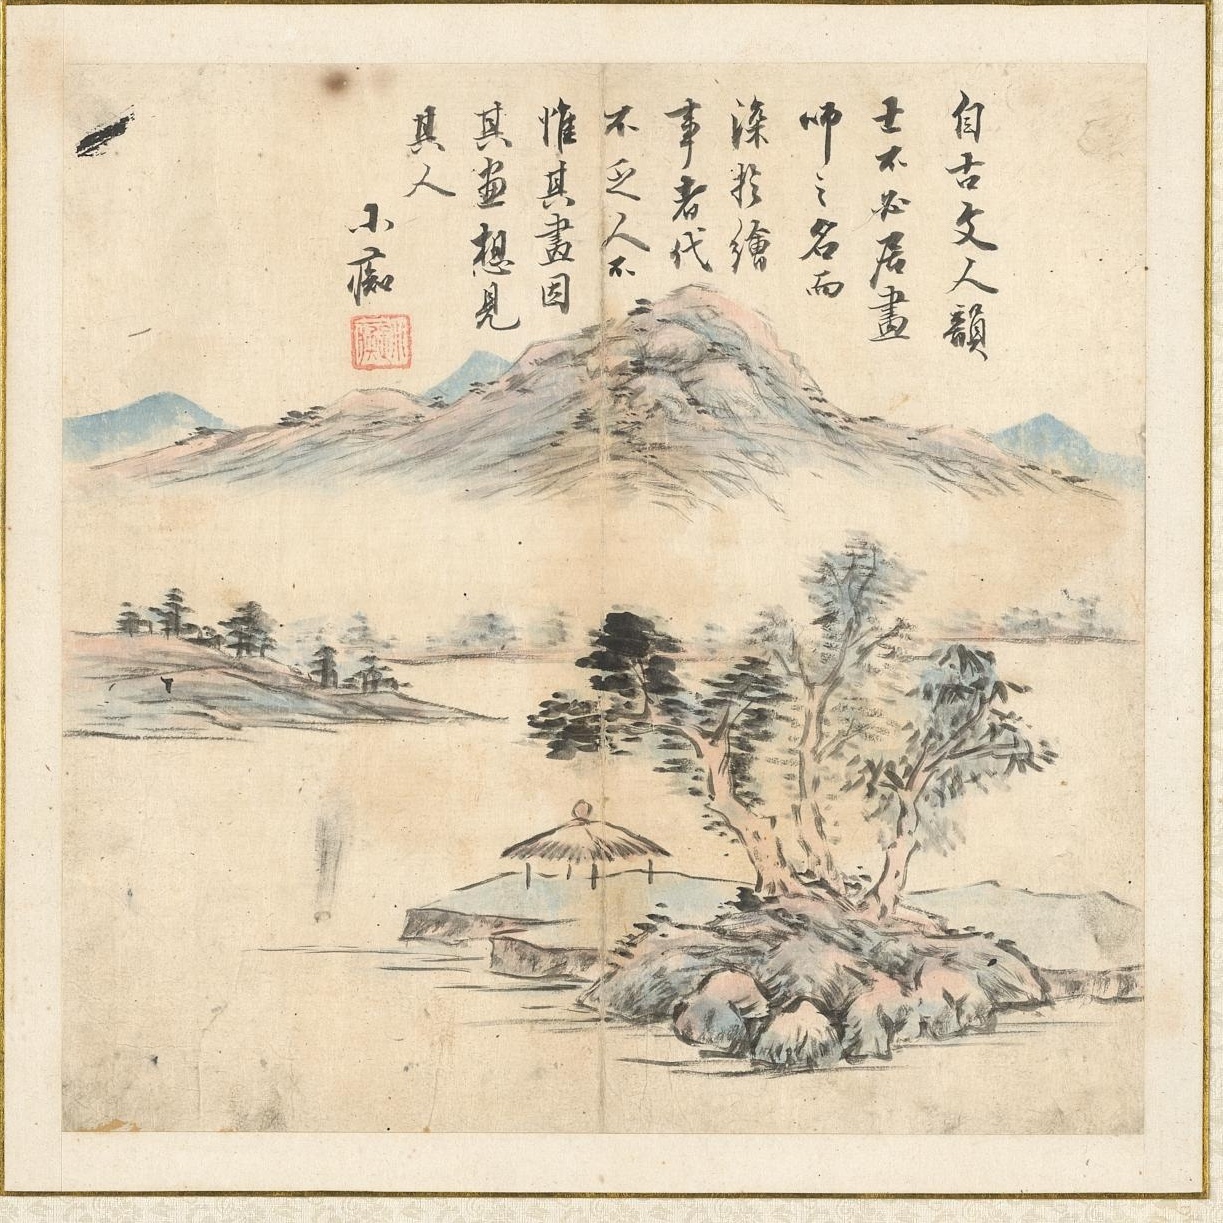 自古文人韻
士不必居畫
師之名而
深於繪
事者代
不乏人不
惟其畫因
其畫想見
其人
小癡